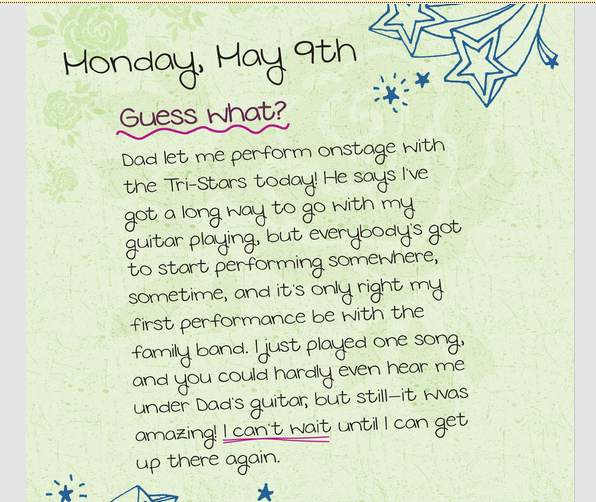 Monday, May 9th
Guess what?
Dad let me perform onstage with
the Tri-Stars today! He says I've
got a long way to go with my
guitar playing, but everybody's got
to start performing somewhere,
sometime, and it's only right my
first performance be with the
family band. I just played one song,
and you could hardly even hear me
under Dad's guitar, but still—it was
amazing! I can't wait until I can get
up there again.